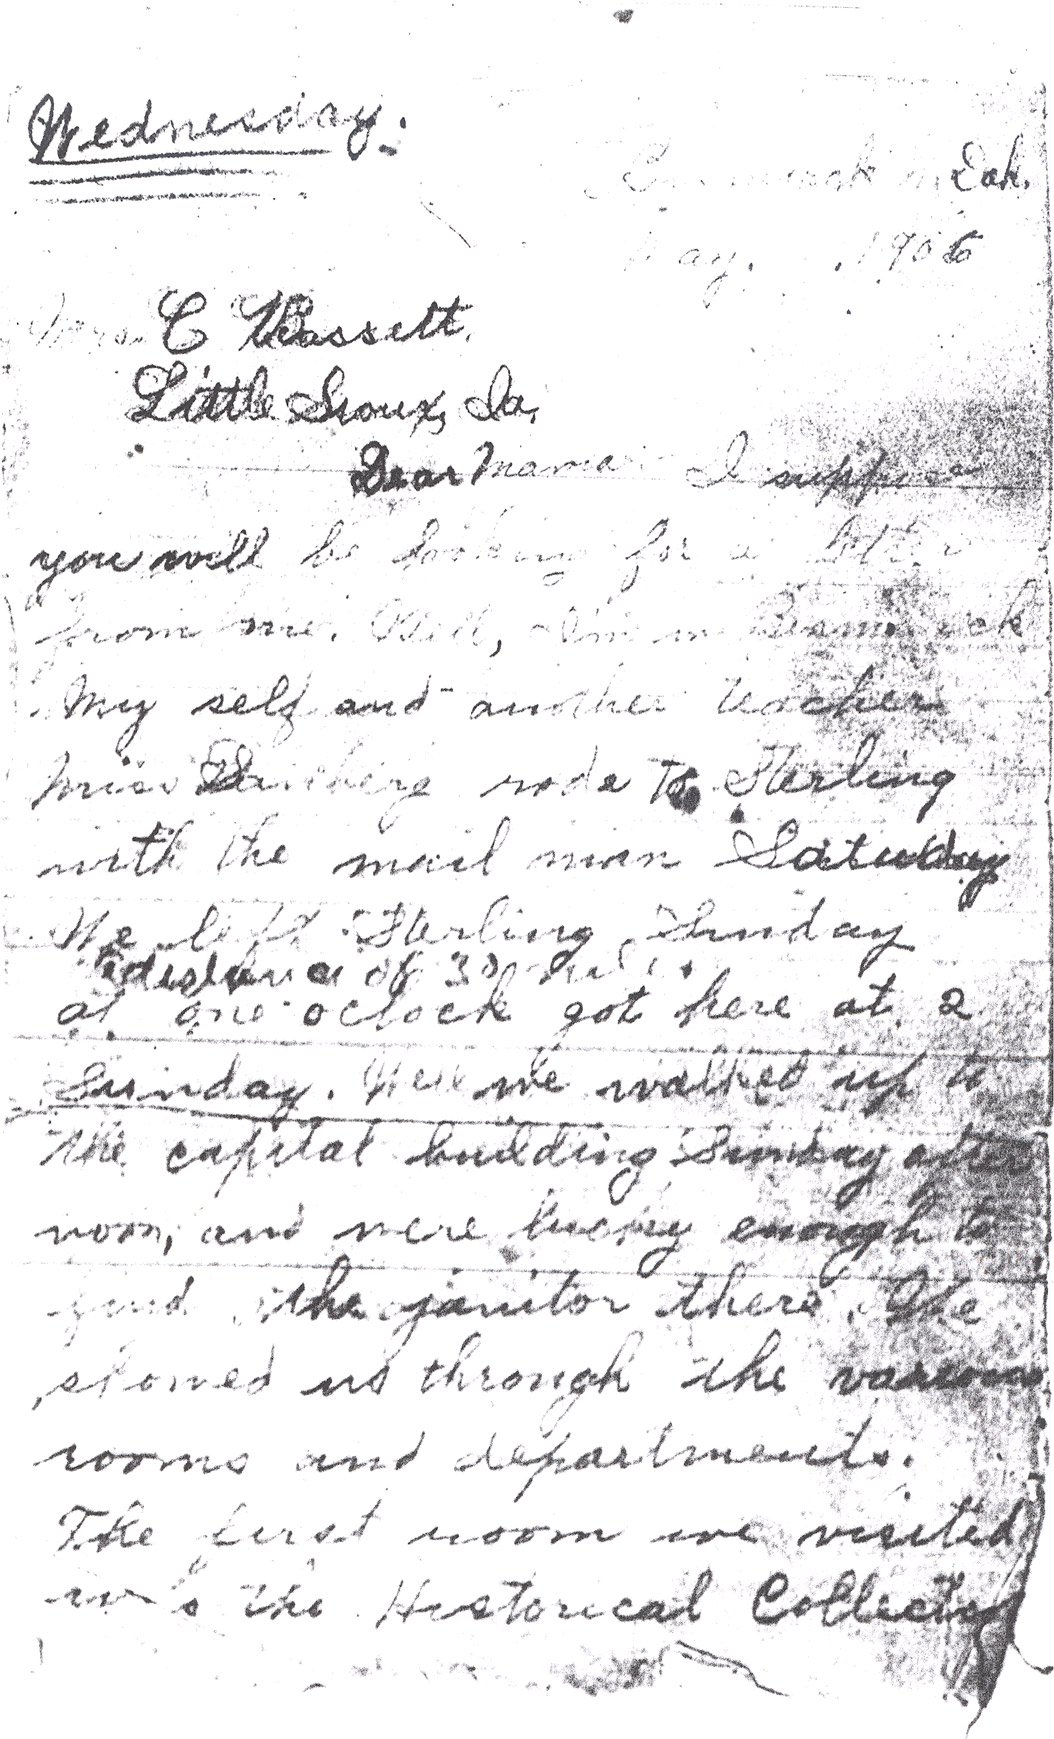 Wednesday.
Bismarck n Dak.
May. 1906
Mrs. C Bassett.
Little Sioux, Ia,
Dear Mama I suppose
you will be looking for a letter
from me. Well, I'm in Bismarck
My self and another teacher
Miss rode to Sterling
with the mail man Saturday
We left Sterling Sunday
distance of 30 miles.
at one o'clock got here at 2
Sunday. Well we walked up to
the capital building Sunday after
noon, and were lucky enough to
find the janitor there. He
showed us through the various
rooms and departments.
The first room we visited
was the Historical